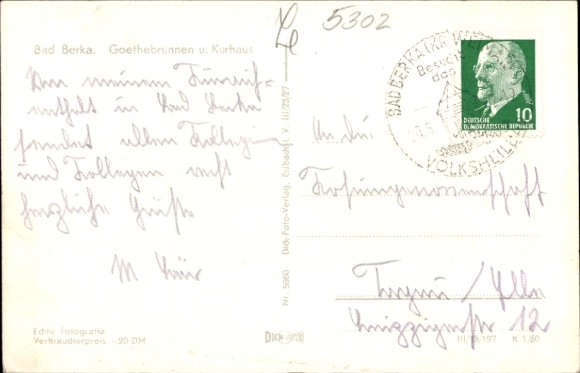 5302
Bad Berka. Goethebrunnen u. Kurhaus
Von meinem Kurauf-
enthalt in Bad Berka
sendet allen Kolleg-
und Kollegen recht
herzliche Grüße
M.
Echte Fotografie
Verbraucherpreis -.20 DM
Nr. 5960 Dick-Foto-Verlag, Erlbach i. V. III/23/27
DICK
BAD BERKA (KR WEIMAR)
Besucht
das
VOLKSHEILB
10
DEUTSCHE
DEMOKRATISCHE REPUBLIK
An die
Torgau/Elbe
12
III/18/197 K 1/60